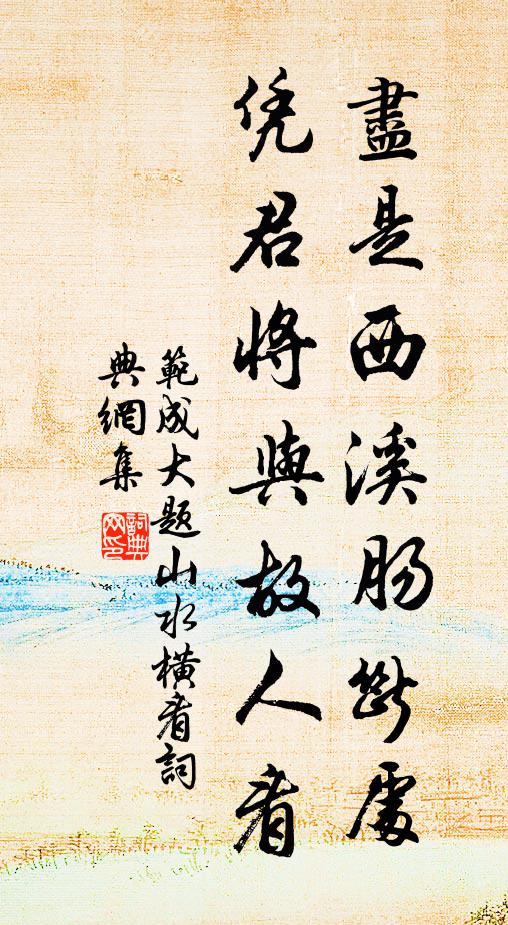 盡是西溪腸斷處
凭君將與故人看
範成大題山水橫看詞
典網集
詞典
网印